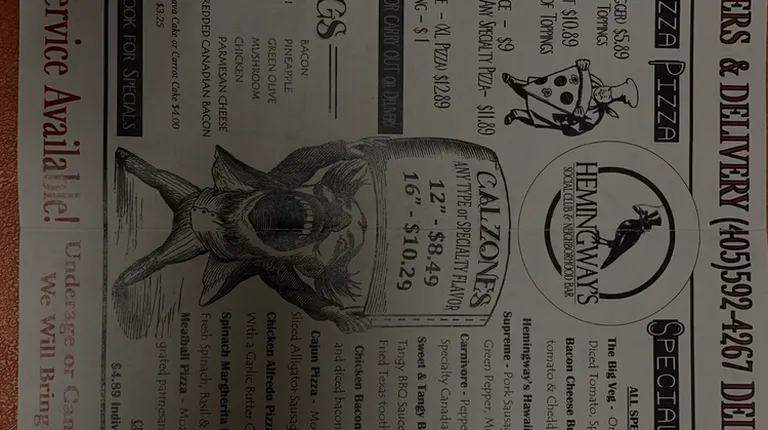 ERS & DELIVERY (405)592-4267 DEL
PIZZA
GGER $5.89
TOPPINGS
$10.89
OF TOPPINGS
CE - $9
AN SPECIALTY PIZZA- $11.89
- XL PIZZA $12.89
NG - $1
OR CARRY OUT OR DELIVERY
GS
BACON
PINEAPPLE
GREEN OLIVE
MUSHROOM
CHICKEN
PARMESAN CHEESE
REDDED CANADIAN BACON
ava Cake or Carrot Cake $4.00
$3.25
OOK FOR SPECIALS
ervice Available!
HEMINGWAY'S
SOCIAL CLUB & NEIGHBORHOOD BAR
CALZONES
ANY TYPE or SPECIALTY FLAVOR
12" - $8.49
16" - $10.29
SPECIAL
ALL SPE
The Big Veg - O
Diced Tomato, Sp
Bacon Cheese Bu
tomato & Chedd
Hemingway's Hawaii
Supreme - Pork Sausa
Green Pepper, M
Carnivore - Peppe
Specialty Canadia
Sweet & Tangy B
Tangy BBQ Sauce
Fried Texas tooth
Chicken Bacon
and diced bacon
Cajun Pizza - Mo
Sliced Alligator Sausag
Chicken Alfredo Pizza
With a Garlic Butter C
Spinach Margherita
Fresh Spinach, Basil &
Meatball Pizza - Moz
grated parmesan
$4.89 Indiv
Underage or Can
We Will Bring